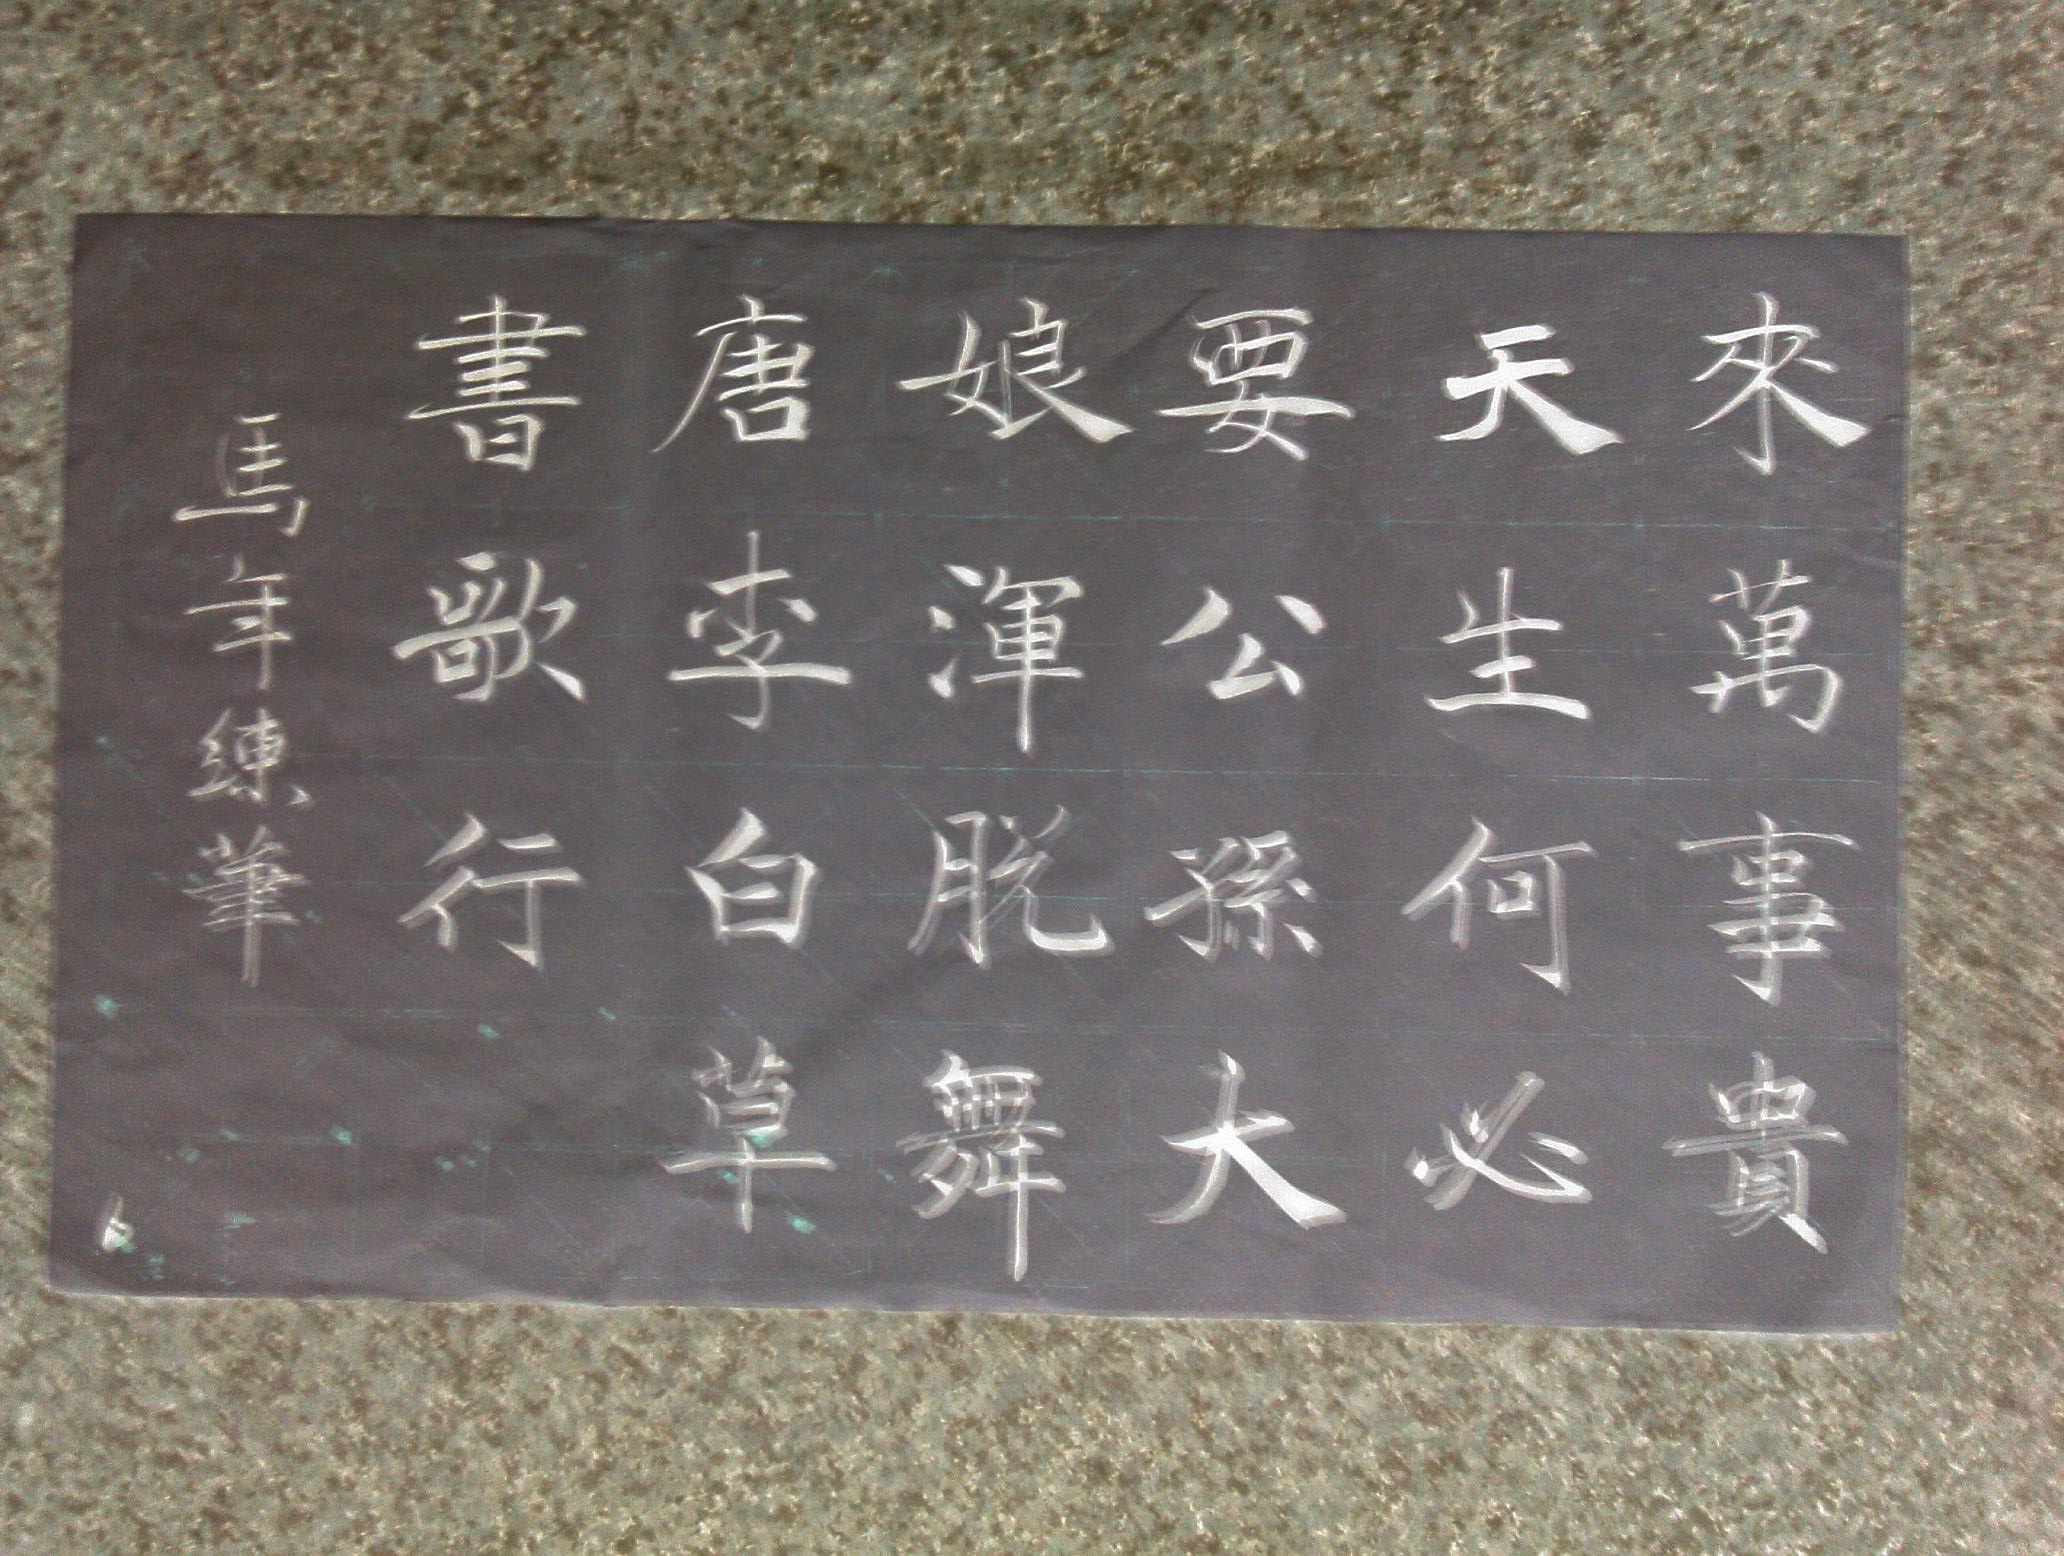 來萬事貴
天生何必
要公孫大
娘渾脫舞
唐李白草
書歌行
馬年練筆